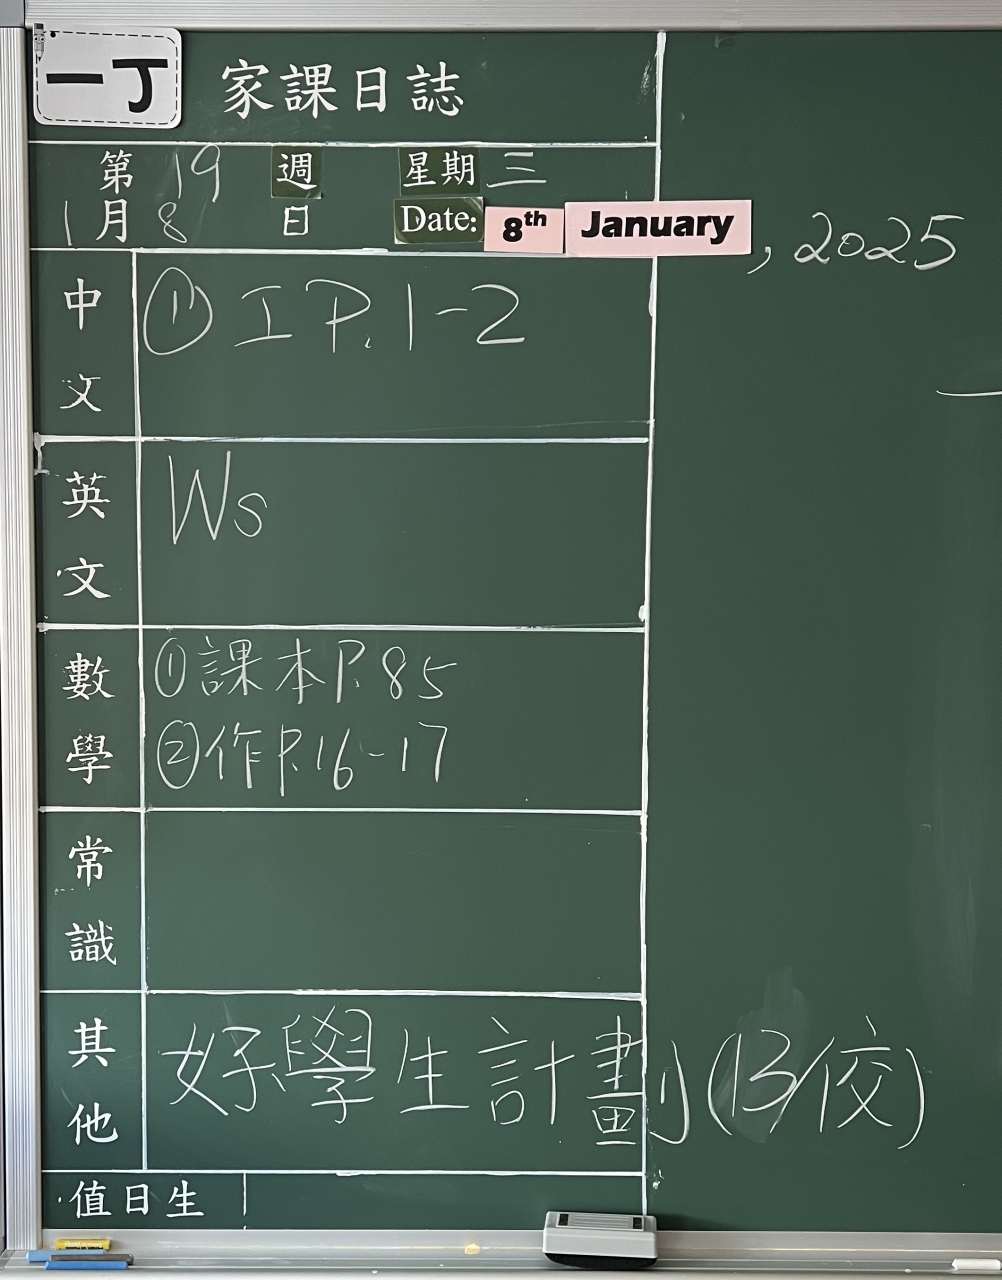 一丁 家課日誌
第 19 週 星期 三
1 月 8 日 Date: 8th January , 2025
中文 ① 工 P.1-2
英文 Ws
數學 ① 課本 P.85
② 作 P.16-17
常識
其他 好學生計劃 (13/佼)
值日生